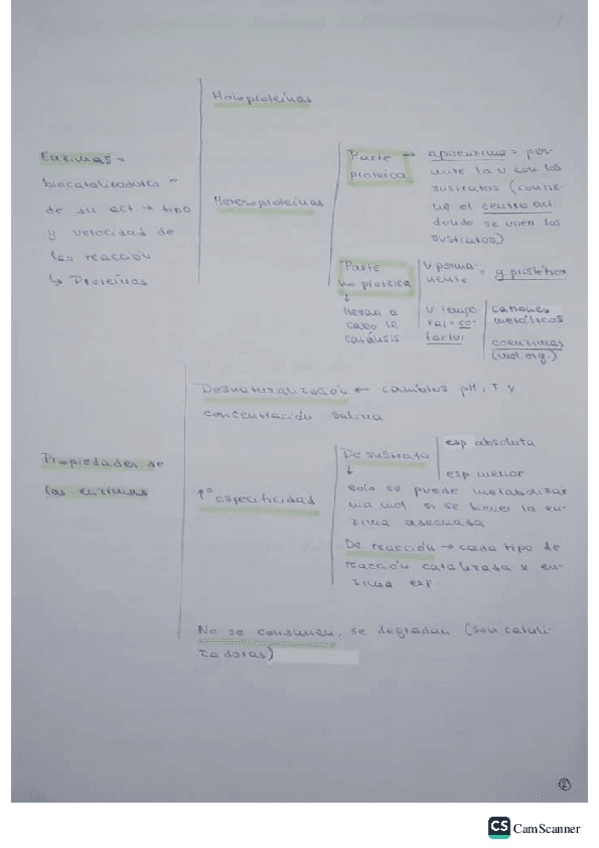 Holoproteínas
Enzimas =
biocatalizadores -
de su act → tipo
y velocidad de
las reacción
↳ Proteínas
Heteroproteínas
Parte → apoenzima = per-
proteica mite la v con los
sustratos (contie-
ne el centro act.
donde se unen los
sustratos)
Parte
no proteica
↓
llevan a
cabo la
catálisis
v perma-
nente = g. prostético
v tempo-
ral = co-
factor
cationes
metálicos
coenzimas
(mol. org.)
Propiedades de
las enzimas
Desnaturalización ← cambios pH, T y
concentración salina
↑º especificidad
De sustrato
esp absoluta
esp menor
↓
solo se puede metabolizar
una mol. si se la en-
zima adecuada
De reacción → cada tipo de
reacción catalizada x en-
zima esp.
No se consumen, se degradan (son catali-
zadoras)
2
CS CamScanner